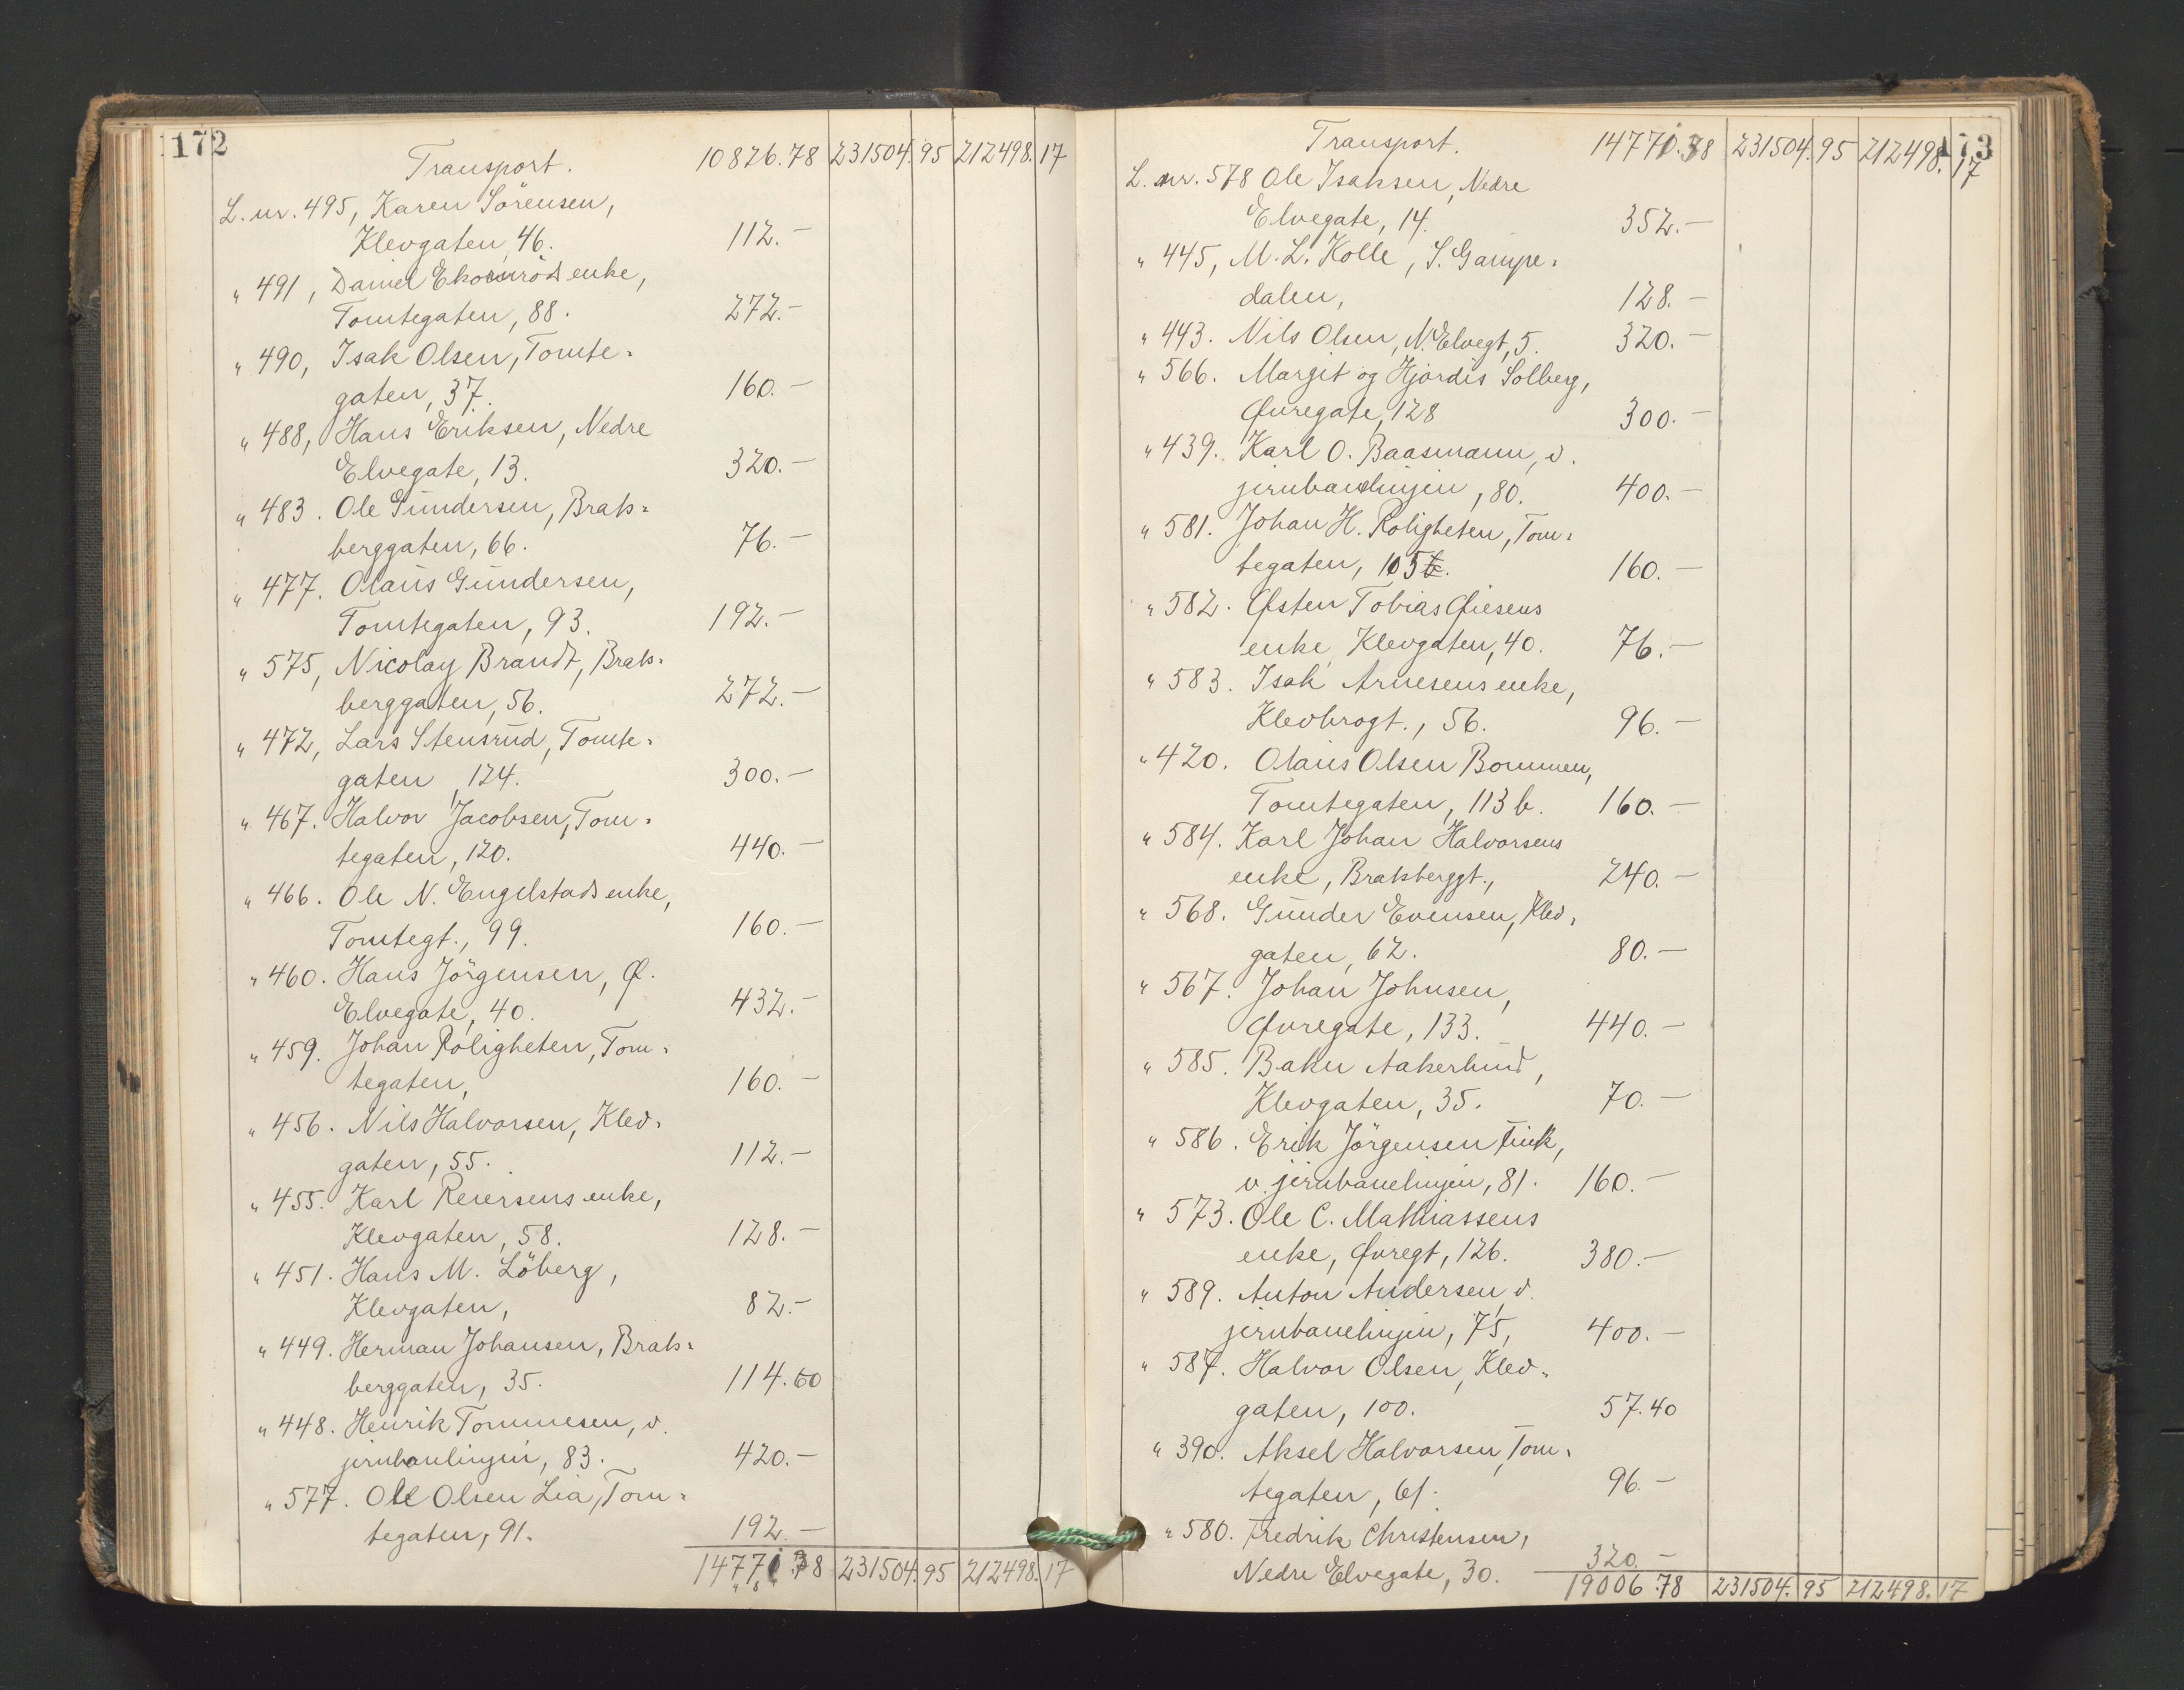 172
Transport. 10826.78 231504.95 212498.17
L. nr. 495, Karen Sörensen,
Klevgaten, 46. 112.-
" 491, Daniel Ekornröds enke,
Tomtegaten, 88. 272.-
" 490, Isak Olsen, Tomte=
gaten, 37. 160.-
" 488, Hans Eriksen, Nedre
Elvegate, 13. 320.-
" 483. Ole Gundersen, Brats=
berggaten, 66. 76.-
" 477. Olaus Gundersen,
Tomtegaten, 93. 192.-
" 575, Nicolay Brandt, Brats=
berggaten, 56. 272.-
" 472, Lars Stensrud, Tomte=
gaten, 124. 300.-
" 467. Halvor Jacobsen, Tom=
tegaten, 120. 440.-
" 466. Ole N. Engelstads enke,
Tomtegt., 99. 160.-
" 460. Hans Jörgensen, Ø.
Elvegate, 40. 432.-
" 459. Johan Roligheten, Tom=
tegaten, 160.-
" 456. Nils Halvorsen, Klev=
gaten, 55. 112.-
" 455. Karl Reiersens enke,
Klevgaten, 58. 128.-
" 451. Hans M. Löberg,
Klevgaten, 82.-
" 449. Herman Johansen, Brats=
berggaten, 35. 114.60
" 448. Henrik Tommesen, v.
jernbanlinjen, 83. 420.-
" 577. Ole Olsen Lia, Tom=
tegaten, 91. 192.-
231504.95 212498.17
173
Transport. 231504.95 212498.17
L. nr. 578 Ole Isaksen, Nedre
Elvegate, 14. 352.-
" 445, M. L. Kolle, S. Gampe=
dalen, 128.-
" 443. Nils Olsen, N. Elvegt, 5. 320.-
" 566. Margit og Hjördis Solberg,
Øvregate, 128 300.-
" 439. Karl O. Baasmann, v.
jernbanelinjen, 80. 400.-
" 581. Johan H. Roligheten, Tom=
tegaten, 105 b. 160.-
" 582. Østen Tobias Øiesens
enke, Klevgaten, 40. 76.-
" 583. Isak Arnesens enke,
Klevbrogt., 56. 96.-
" 420. Olaus Olsen Bommen,
Tomtegaten, 113 b. 160.-
" 584. Karl Johan Halvorsens
enke, Bratsberggt., 240.-
" 568. Gunder Evensen, Klev=
gaten, 62. 80.-
" 567. Johan Johnsen,
Øvregate, 133. 440.-
" 585. Baker Aakerlund,
Klevgaten, 35. 70.-
" 586. Erik Jörgensen Funk,
v. jernbanelinjen, 81. 160.-
" 573. Ole C. Mathiassens
enke, Øvregt, 126. 380.-
" 589. Anton Andersen, v.
jernbanelinjen, 75, 400.-
" 587. Halvor Olsen, Klev=
gaten, 100. 57.40
" 390. Aksel Halvorsen, Tom=
tegaten, 61. 96.-
" 580. Fredrik Christensen,
Nedre Elvegate, 30. 320.-
19006.78 231504.95 212498.17